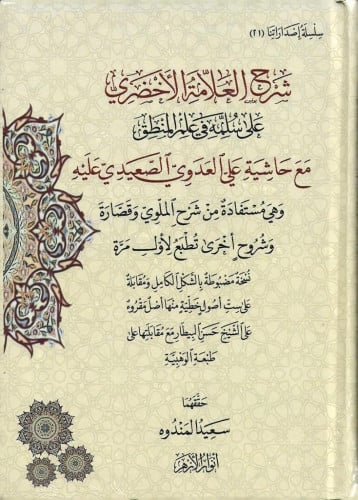 سِلْسِلَةُ إصْدَارَاتِنَا (٢١)
شَرْحُ العَلَّامَةِ الأَخْضَرِيِّ
عَلَى سُلَّمِهِ فِي عِلْمِ المَنْطِقِ
مَعَ حَاشِيَةِ عَلِيٍّ العَدَوِيِّ الصَّعِيدِيِّ عَلَيْهِ
وَهِيَ مُسْتَفَادَةٌ مِنْ شَرْحِ المَلَّوِي وَقَصَّارَةَ
وَشُرُوحٍ أُخْرَى تُطْبَعُ لِأَوَّلِ مَرَّةٍ
نُسْخَةٌ مَضْبُوطَةٌ بِالشَّكْلِ الكَامِلِ وَمُقَابَلَةٌ
عَلَى سِتِّ أُصُولٍ خَطِّيَّةٍ مِنْهَا أَصْلٌ مَقْرُوءٌ
عَلَى الشَّيْخِ حَسَنٍ البِيطَارِ مَعَ مُقَابَلَتِهَا عَلَى
طَبْعَةِ الوَهْبِيَّةِ
حَقَّقَهُمَا
سَعِيد المَنْدُوه
أنوار الأزهر